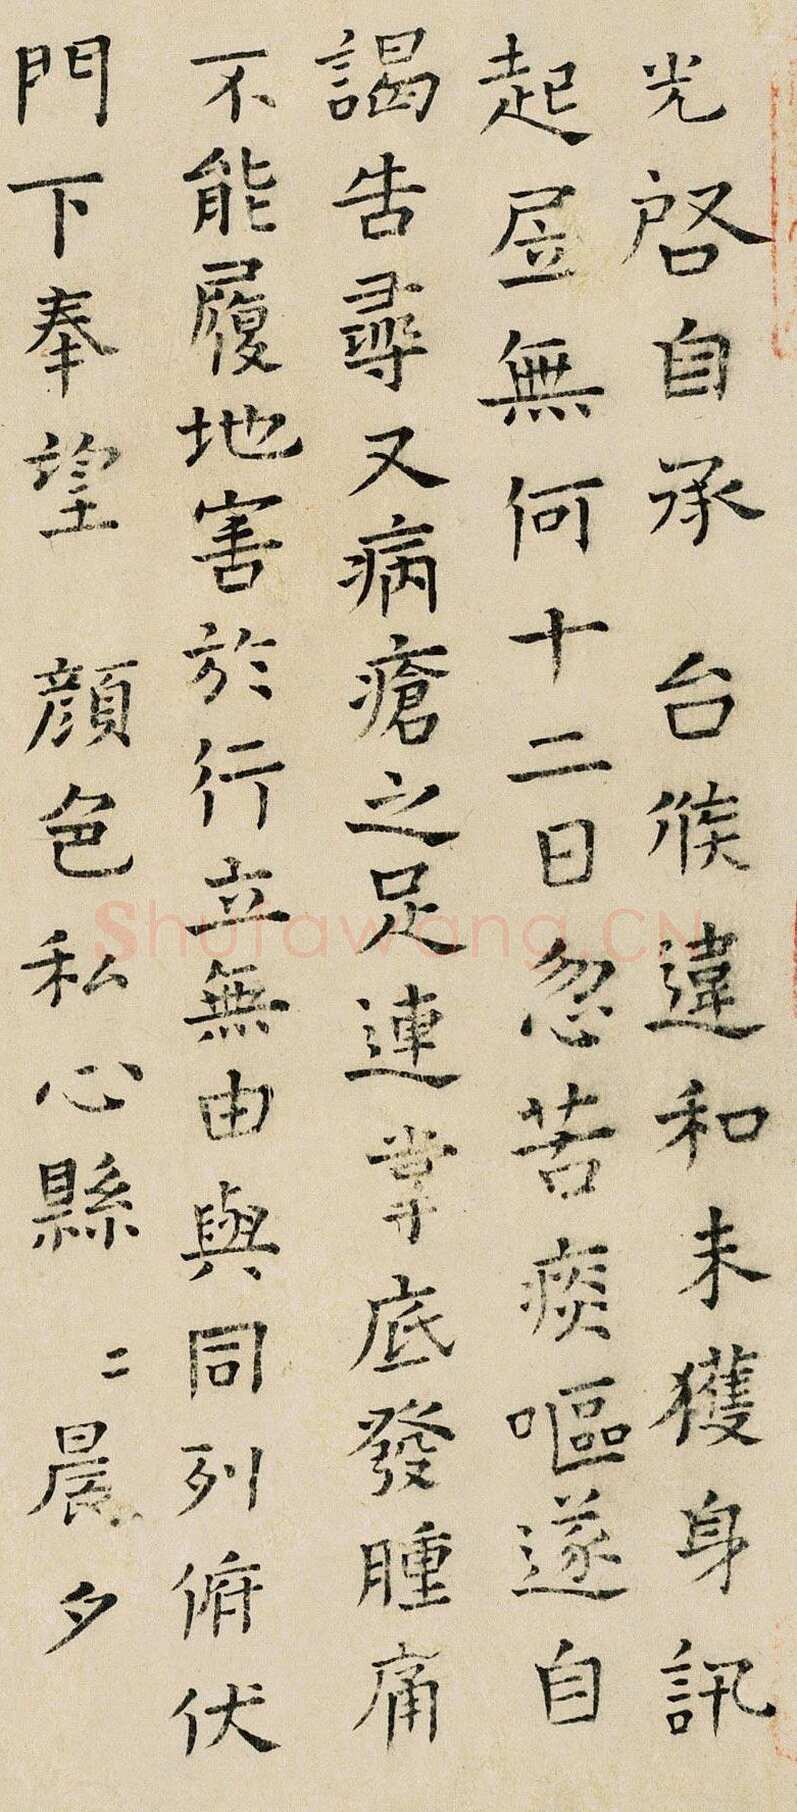 光啓自承　台候違和未獲身訊
起居無何十二日忽苦痰嘔遂自
謁告尋又病瘡之足連掌底發腫痛
不能履地害於行立無由與同列俯伏
門下奉望　顔色私心縣〻晨夕
Shufawang.CN